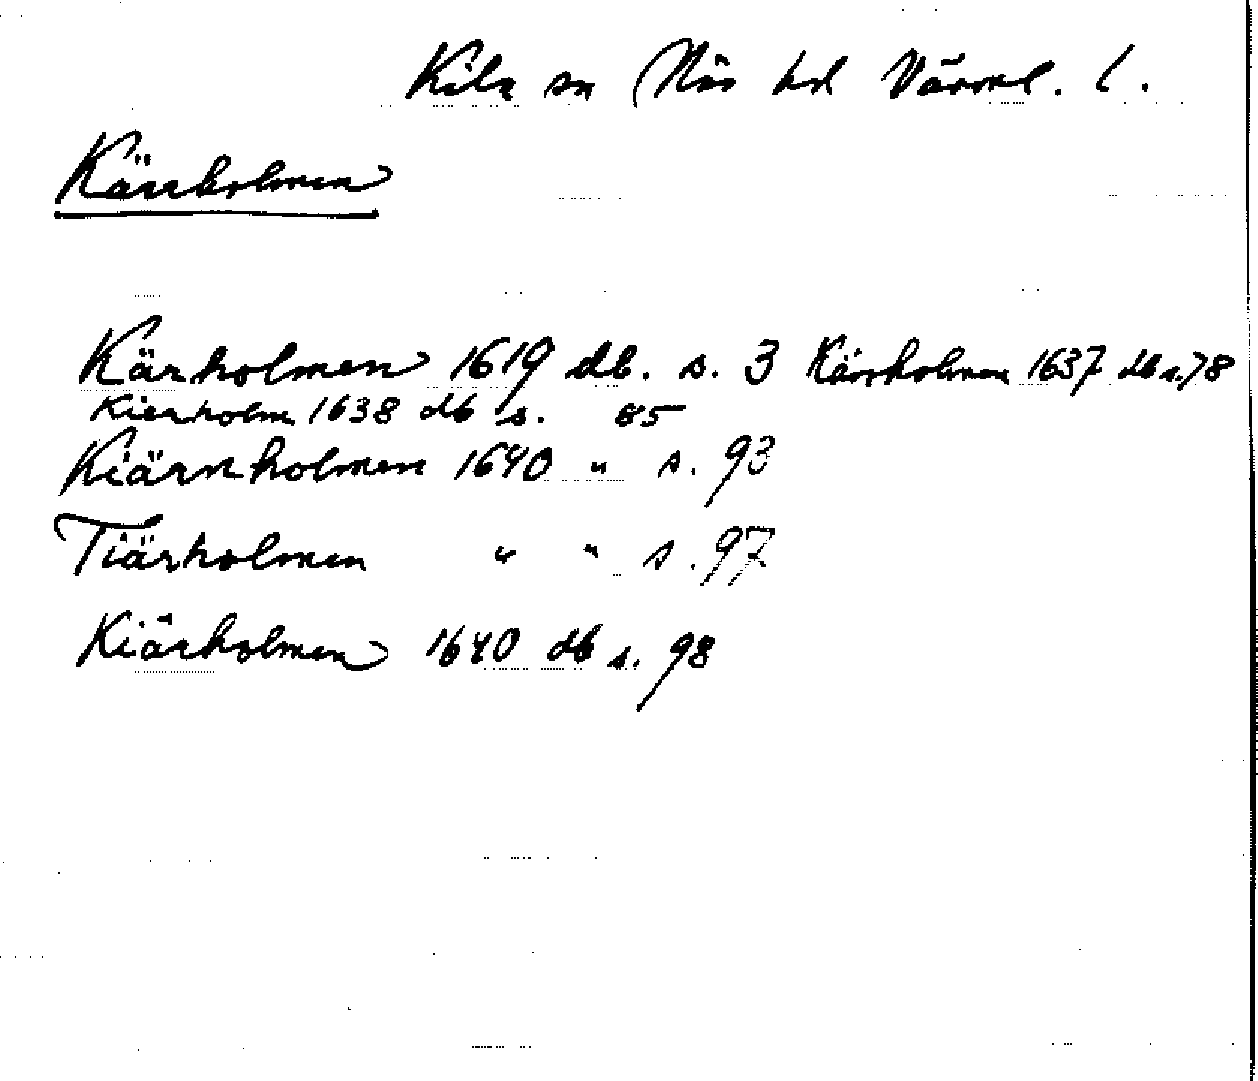 Kila sn Näs hd Värml. l.
Kärrholmen
Kärholmen 1619 db. s. 3 Kärrholmen 1637 db s. 78
Kierholm 1638 db s. 85
Kiärnholmen 1640 " s. 93
Tiärholmen " " s. 97
Kiärholmen 1640 db s. 98